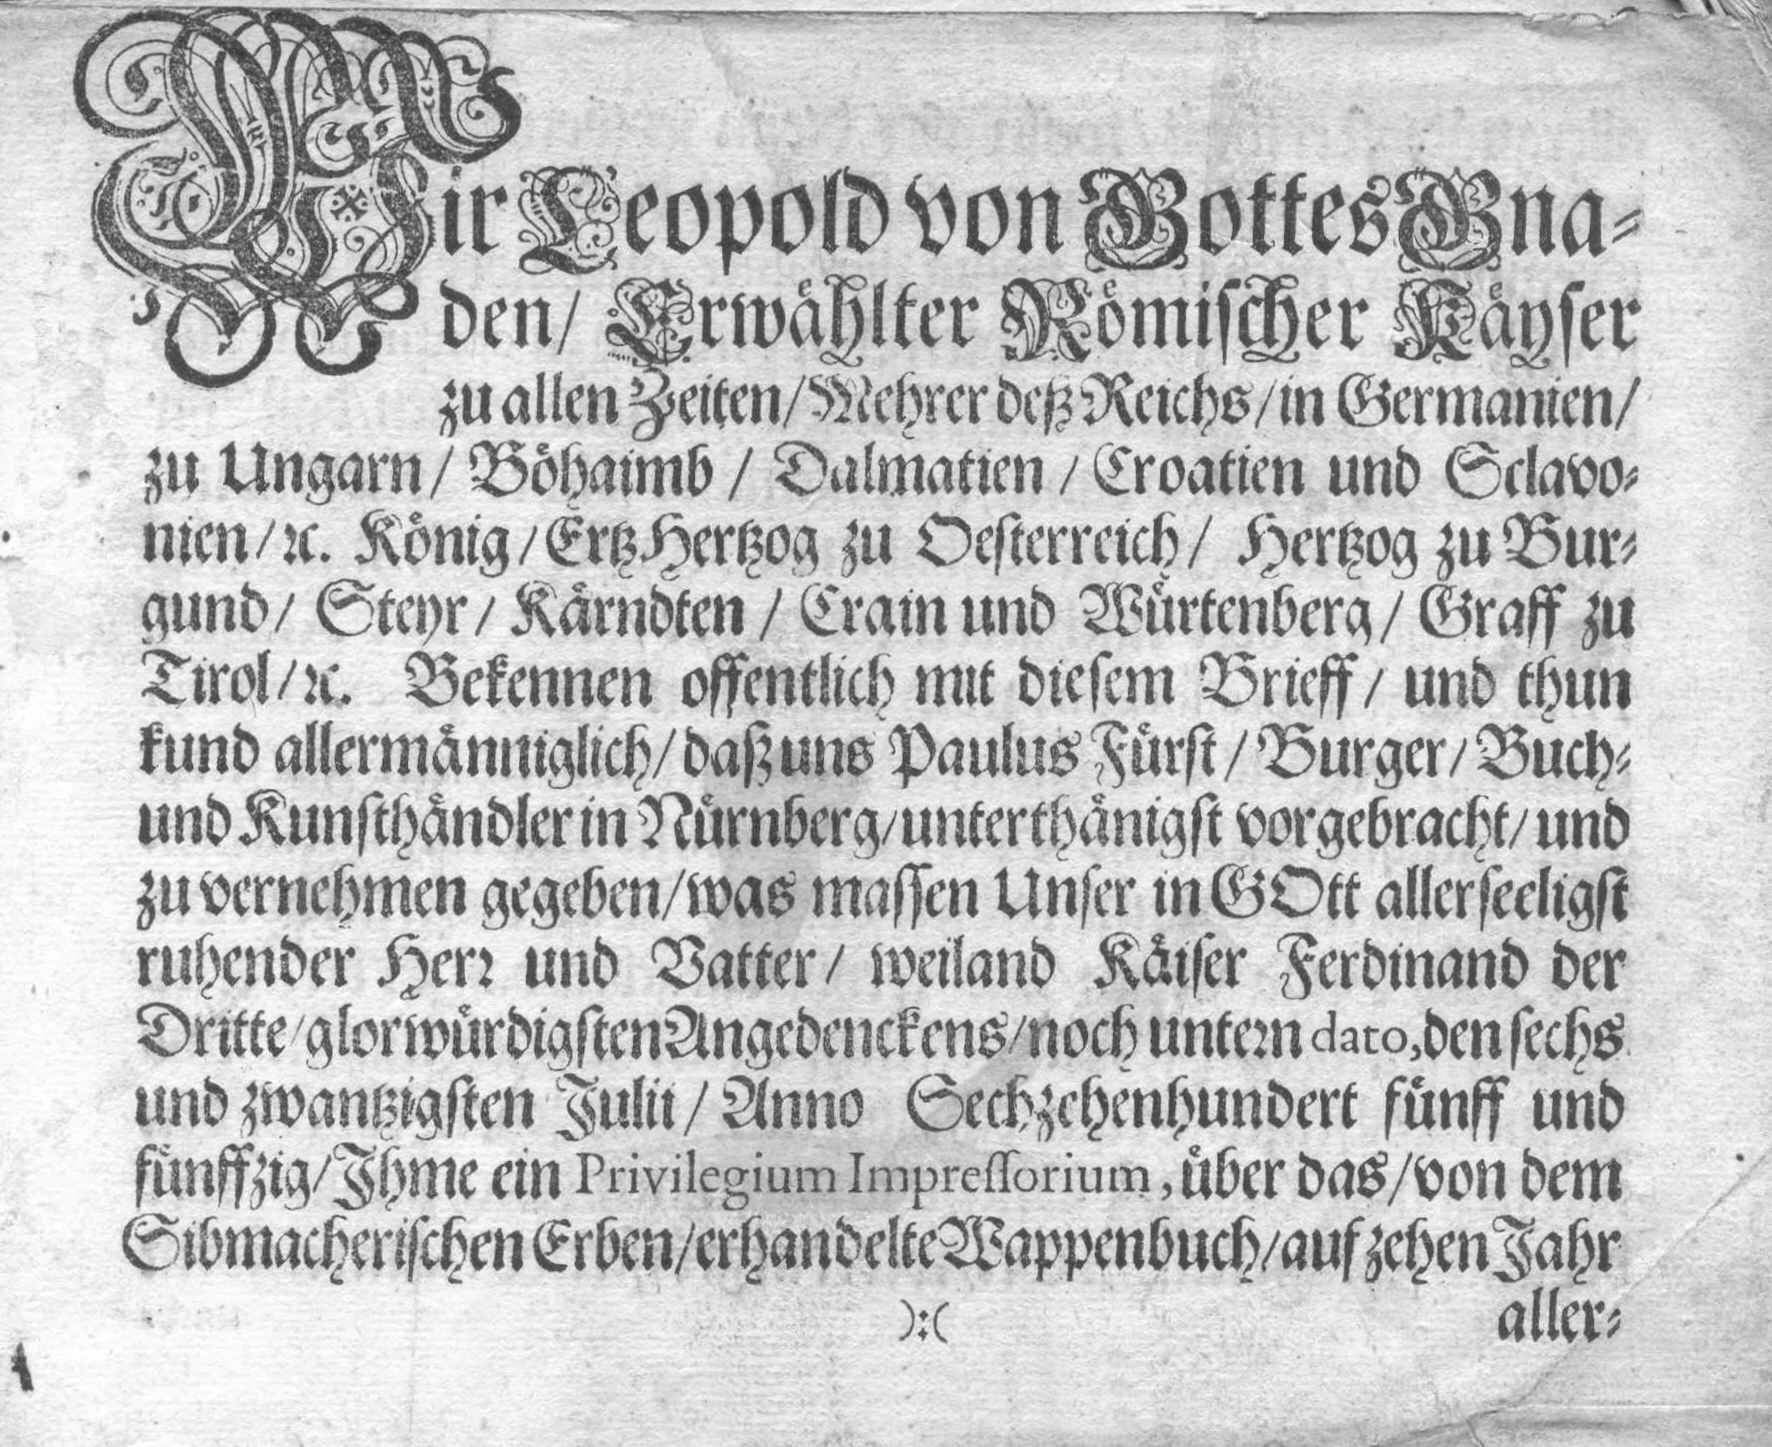 Wir Leopold von Gottes Gna-
den/ Erwählter Römischer Käyser
zu allen Zeiten/Mehrer deß Reichs/in Germanien/
zu Ungarn/ Böhaimb / Dalmatien / Croatien und Sclavo-
nien/ꝛc. König/ErtzHertzog zu Oesterreich/ Hertzog zu Bur-
gund/ Steyr/ Kärndten / Crain und Würtenberg/ Graff zu
Tirol/ꝛc. Bekennen offentlich mit diesem Brieff/ und thun
kund allermänniglich/daß uns Paulus Fürst/Burger/Buch-
und Kunsthändler in Nürnberg/unterthänigst vorgebracht/und
zu vernehmen gegeben/was massen Unser in GOtt allerseeligst
ruhender Herr und Vatter/ weiland Käiser Ferdinand der
Dritte/glorwürdigsten Angedenckens/noch untern dato,den sechs
und zwantzigsten Julii/ Anno Sechzehenhundert fünff und
fünffzig/Ihme ein Privilegium Impressorium, über das/von dem
Sibmacherischen Erben/erhandelte Wappenbuch/auf zehen Jahr
):( aller-